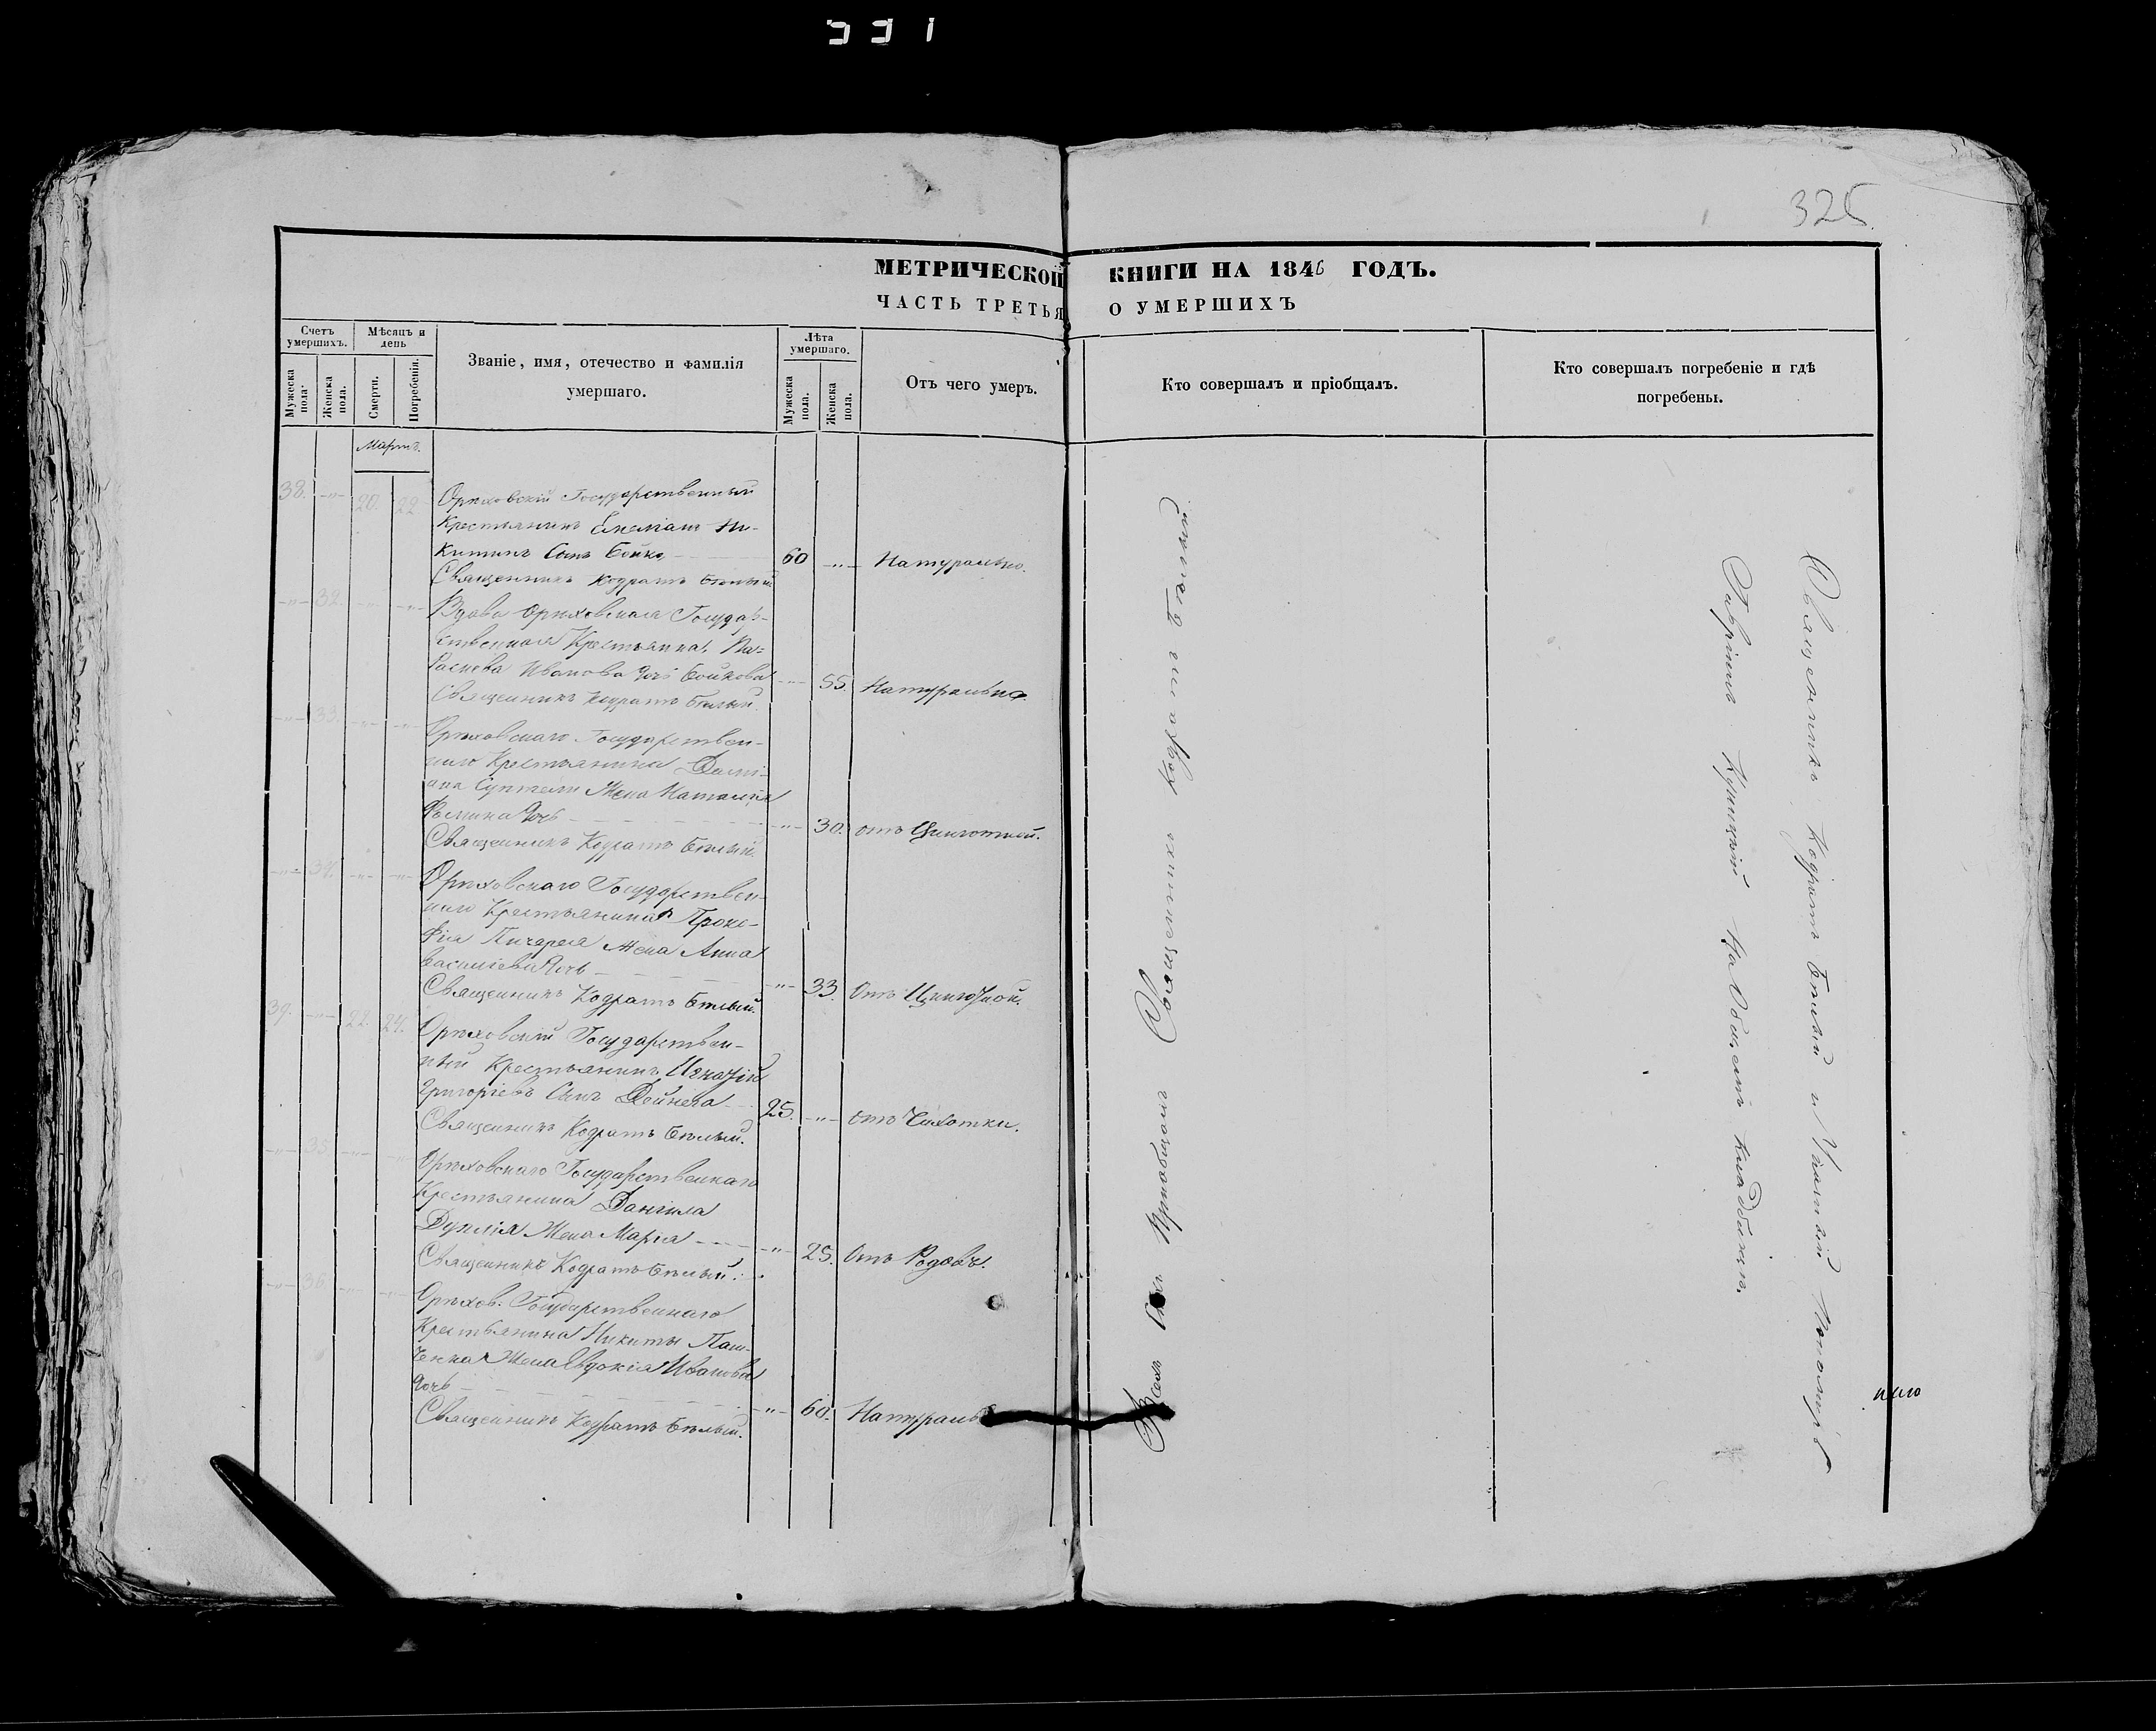 331
325
МЕТРИЧЕСКОЙ КНИГИ НА 1846 ГОДЪ.
ЧАСТЬ ТРЕТЬЯ О УМЕРШИХЪ
Счетъ умершихъ.
Мужеска пола.
Женска пола.
Мѣсяцъ и день
Смерти.
Погребенія.
Званіе, имя, отечество и фамилія
умершаго.
Лѣта умершаго.
Мужеска пола.
Женска пола.
Отъ чего умеръ.
Кто совершалъ и пріобщалъ.
Кто совершалъ погребеніе и гдѣ
погребены.
Мартъ.
38. -"- 20. 22 Орѣховскій Государственный
Крестьянинъ Емеліанъ Ни-
китинъ Сынъ Бойко 60 -"- Натурально.
Священникъ Кодратъ Бѣлый
-"- 32. -"- -"- Вдова Орѣховская Государ-
ственная Крестьянка, Па-
раскева Иванова дочь Бойкова -"- 55. Натурально
Священникъ Кодратъ Бѣлый.
-"- 33. -"- -"- Орѣховскаго Государствен-
наго Крестьянина Дамі-
ана Жена Наталія
дочь -"- 30. отъ Цинготной.
Священникъ Кодратъ Бѣлый.
-"- 34. -"- -"- Орѣховскаго Государствен-
наго Крестьянина Проко-
фія Пичерея Жена Анна
Василіева дочь -"- 33. Отъ Цинготной.
Священникъ Кодратъ Бѣлый.
39. -"- 22. 24. Орѣховскій Государствен-
ный Крестьянинъ Игнатій
Григоріевъ Сынъ Дейнега 25. -"- отъ Чихотки.
Священникъ Кодратъ Бѣлый.
-"- 35 -"- -"- Орѣховскаго Государственнаго
Крестьянина Даніила
Жена Марія -"- 25. Отъ Родовъ.
Священникъ Кодратъ Бѣлый.
-"- 36 -"- -"- Орѣхов. Государственнаго
Крестьянина Никиты Паш-
ченка Жена Евдокія Иванова
дочь -"- 60. Натураль
Священникъ Кодратъ Бѣлый.
Всѣхъ Сихъ Пріобщалъ Священникъ Кодратъ Бѣлый
Священникъ Кодратъ Бѣлый и
Гавріилъ На Общемъ Кладбищѣ.